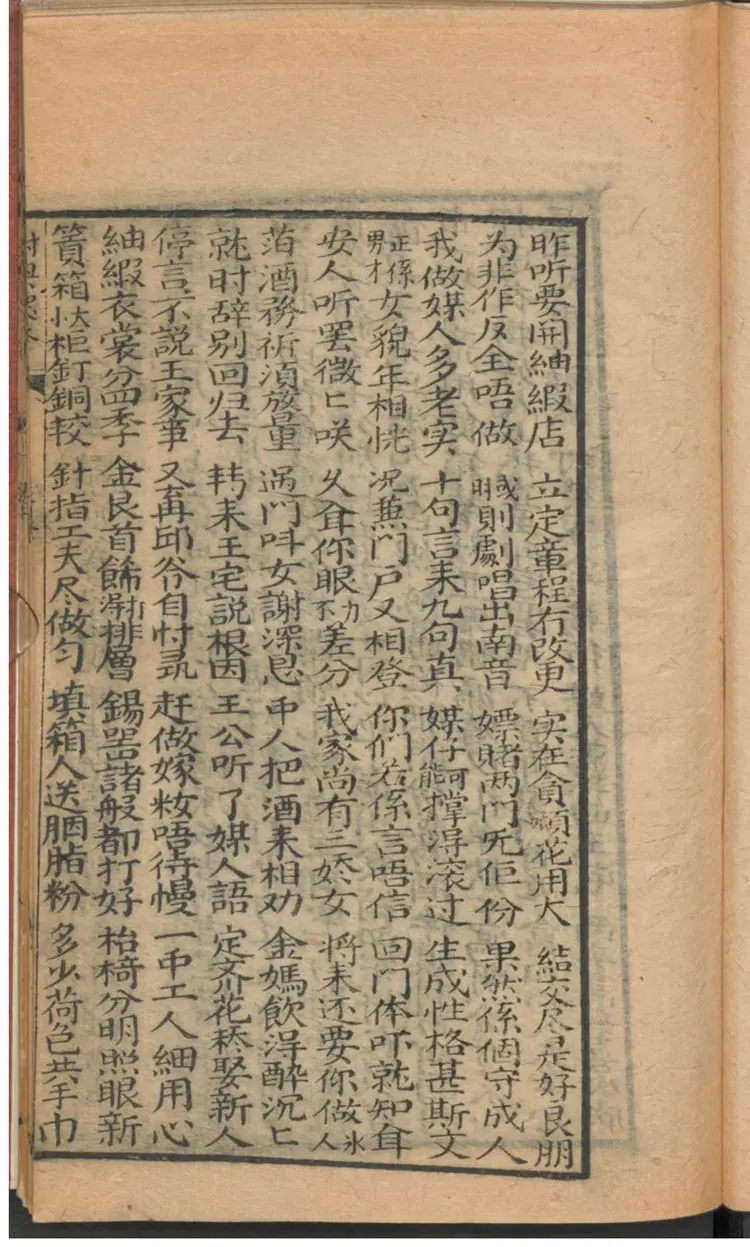 昨听要開紬緞店 立定章程冇改更 实在貪顽花用大 結交尽是好良朋
为非作反全唔做 喊則劇唱出南音 嫖賭两門冇佢份 果然係個守成人
我做媒人多老实 十句言耒九句真 媒仔能可撑淂滚过 生成性格甚斯文
正係男才女貌年相恍 况兼門户又相登 你們若係言唔信 回門体吓就知耸
安人听罢微匕咲 久耸你眼力不差分 我家尚有三娇女 将耒还要你做氷人
萡酒務祈須放量 过門呌女謝深恩 甲人把酒耒相劝 金媽飲淂醉沉匕
就时辞别回归去 转耒王宅説根因 王公听了媒人語 定斉花轿娶新人
停言不說王家事 又再邱爷自忖尋 赶做嫁妆唔待慢 一甲工人細用心
紬緞衣裳分四季 金艮首餙排層 錫噐諸般都打好 枱椅分明照眼新
簣箱大小柜釘銅較 針指工夫尽做匀 填箱人送胭脂粉 多少荷包共手巾